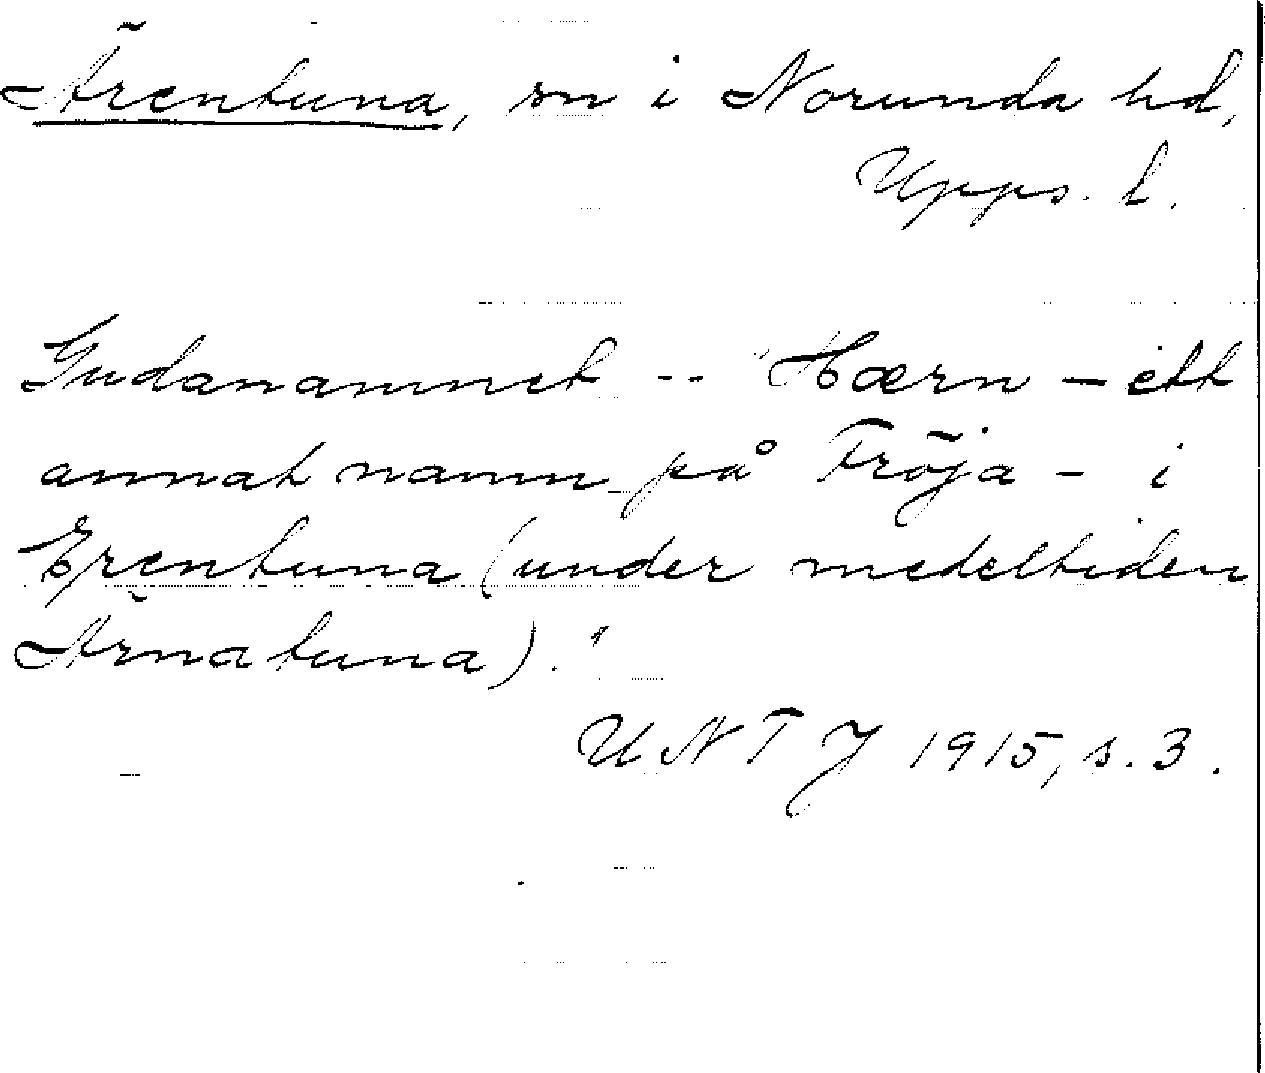 Ärentuna, sn i Norunda hd,
Upps. l.
Gudanamnet -- "Hærn – ett
annat namn på Fröja – i
Erentuna (under medeltiden
Ärnatuna)."
UNT J 1915, s. 3.